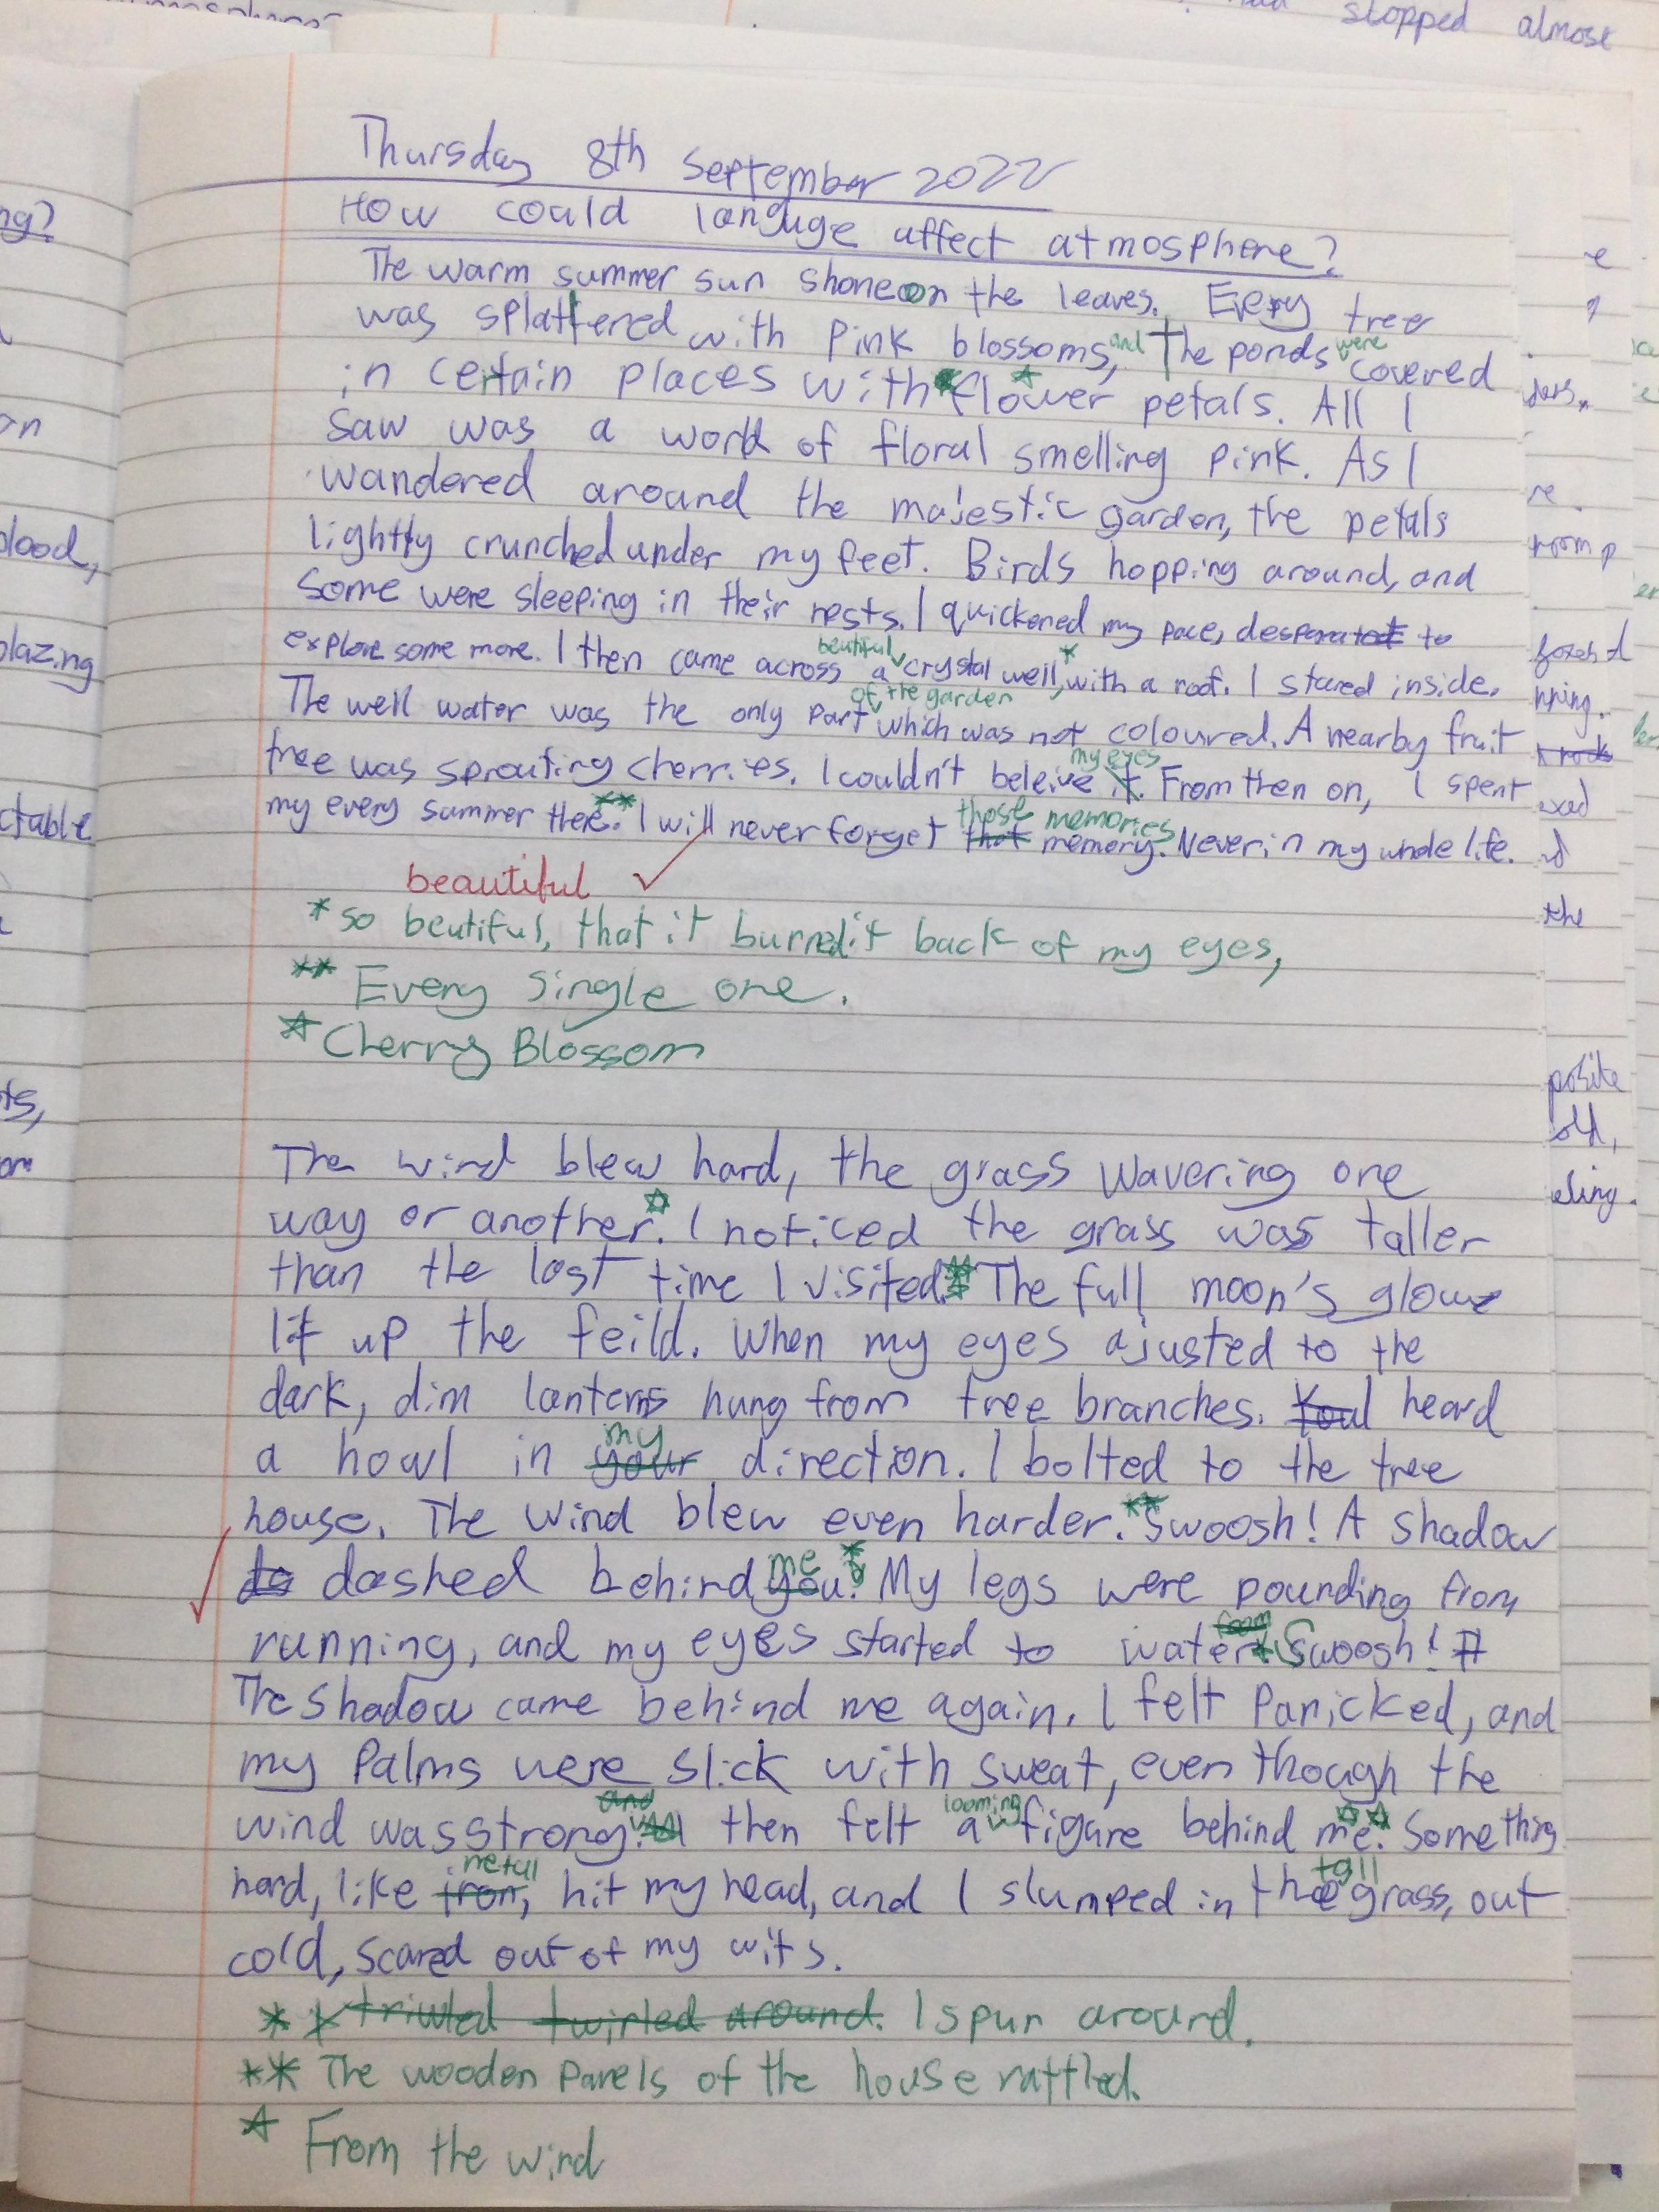 stopped almost
Thursday 8th September 2022
How could languge affect atmosphere?
The warm summer sun shone on the leaves. Every tree
was splattered with pink blossoms, and the ponds were covered
in certain places with flower petals. All I
saw was a world of floral smelling pink. As I
wandered around the majestic garden, the petals
lightly crunched under my feet. Birds hopping around, and
some were sleeping in their nests. I quickened my pace, desperate to
explore some more. I then came across a beutiful crystal well,* with a roof. I stared inside.
The well water was the only part of the garden which was not coloured. A nearby fruit
tree was sprouting cherries. I couldn't beleive my eyes. From then on, I spent
my every summer there.** I will never forget those memories. Never in my whole life.
beautiful ✓
* so beutiful, that it burned it back of my eyes,
** Every single one.
☆ Cherry Blossom
The wind blew hard, the grass wavering one
way or another. I noticed the grass was taller
than the last time I visited. The full moon's glow
lit up the feild. When my eyes ajusted to the
dark, dim lanterns hung from tree branches. I heard
a howl in my direction. I bolted to the tree
house. The wind blew even harder.** Swoosh! A shadow
dashed behind me.* My legs were pounding from
running, and my eyes started to water☆. Swoosh!
The shadow came behind me again. I felt panicked, and
my palms were slick with sweat, even though the
wind was strong. I then felt a looming figure behind me.☆☆ Something
hard, like metall, hit my head, and I slumped in the tall grass, out
cold, scared out of my wits.
* I spun around.
** The wooden panels of the house rattled.
☆ From the wind
ng?
on
blood,
blazing
ctable
ts,
the
posite
old,